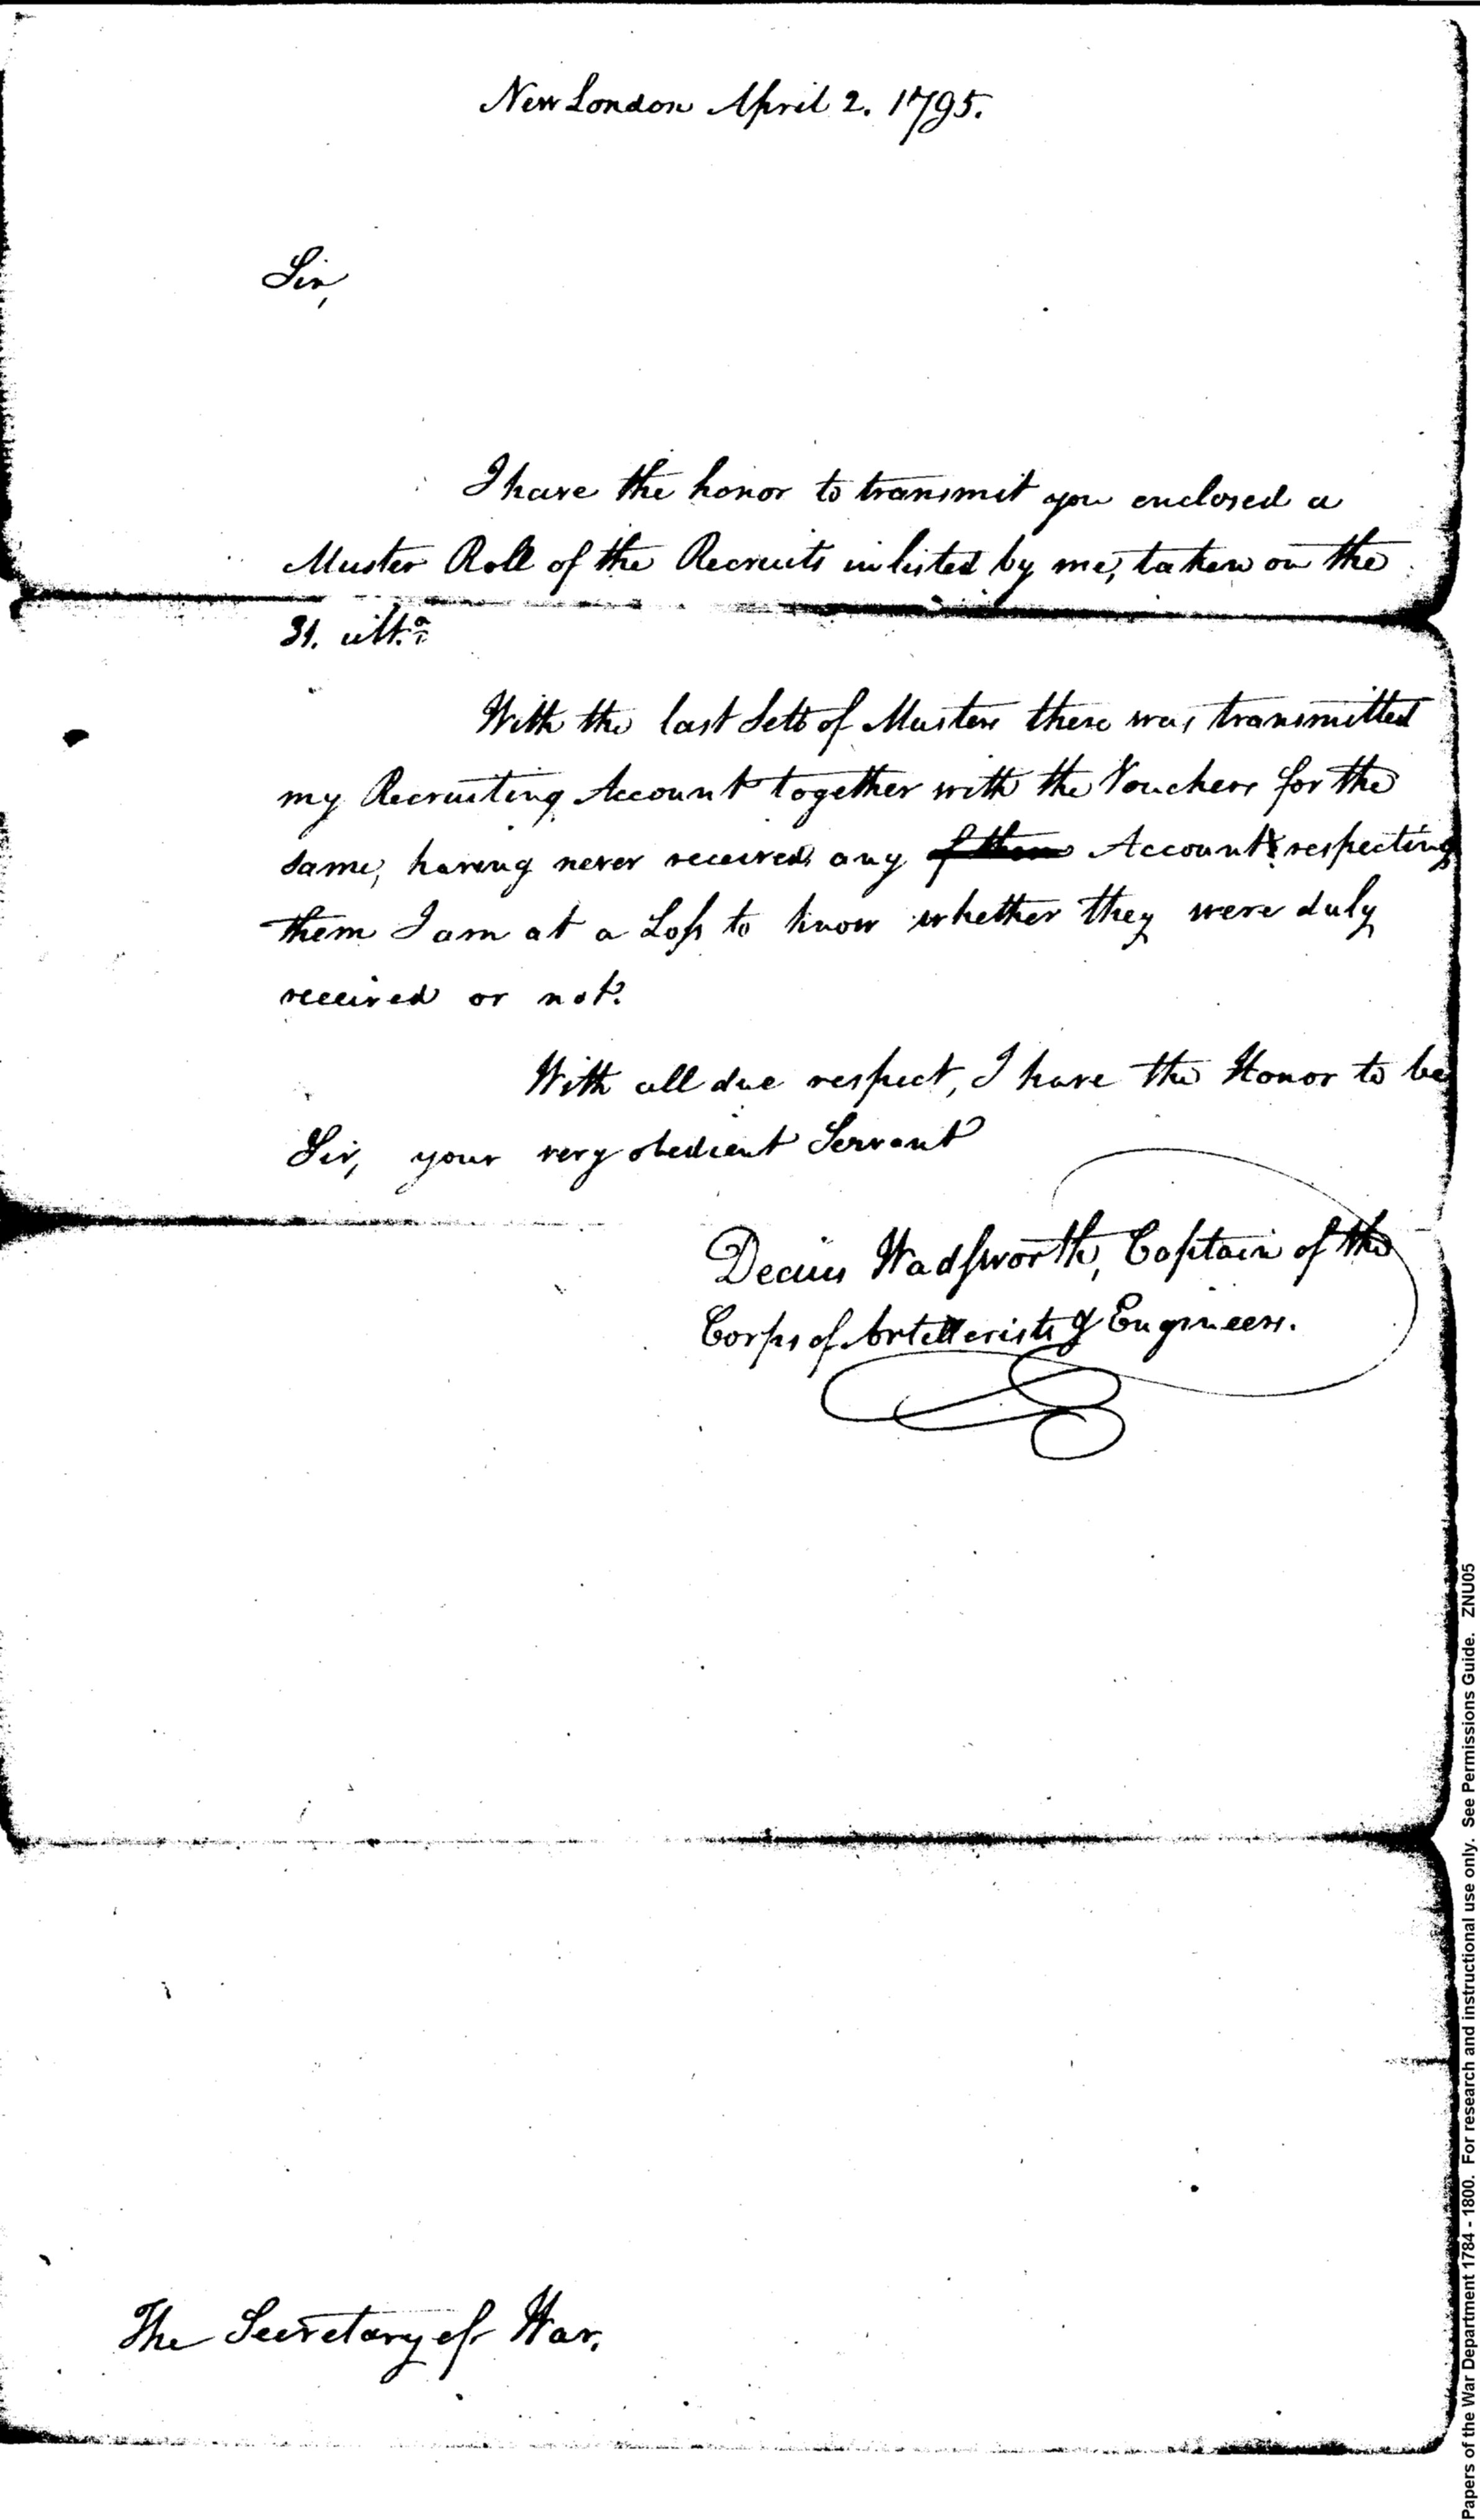 New London April 2. 1795.
Sir,
I have the honor to transmit you enclosed a
Muster Roll of the Recruits inlisted by me, taken on the
31. ulto.
With the last Setts of Musters there was transmitted
my Recruiting Account together with the Vouchers for the
same, having never received any Account respecting
them I am at a Loss to know whether they were duly
received or not.
With all due respect, I have the Honor to be
Sir, your very obedient Servant
Decius Wadsworth, Captain of the
Corps of Artillerists & Engineers.
The Secretary of War.
Papers of the War Department 1784 - 1800. For research and instructional use only. See Permissions Guide. ZNU05